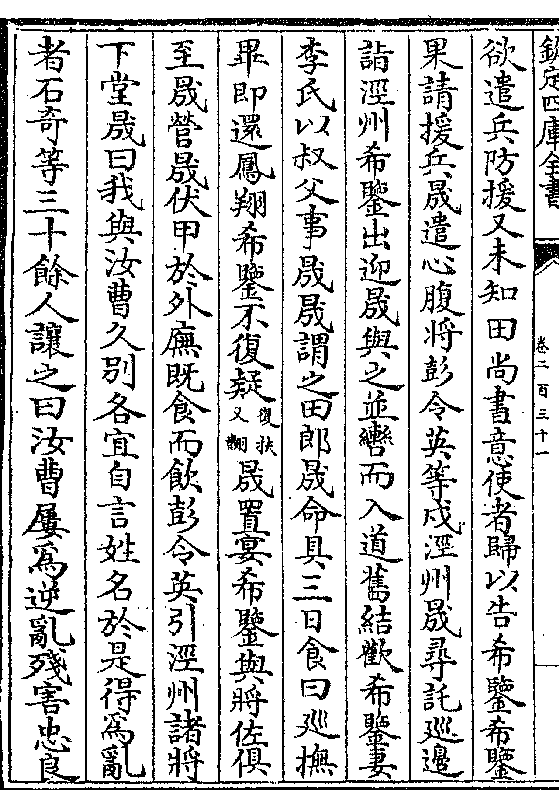 欽定四庫全書
卷二百三十一
欲遣兵防援又未知田尚書意使者歸以告希鑒希鑒
果請援兵晟遣心腹將彭令英等戍涇州晟尋託巡邊
詣涇州希鑒出迎晟與之並轡而入道舊結歡希鑒妻
李氏以叔父事晟晟謂之田郎晟命具三日食曰巡撫
畢即還鳳翔希鑒不復疑復扶又翻晟置宴希鑒與將佐俱
至晟營晟伏甲於外廡既食而飲彭令英引涇州諸將
下堂晟曰我與汝曹久別各宜自言姓名於是得為亂
者石奇等三十餘人讓之曰汝曹屢為逆亂殘害忠良